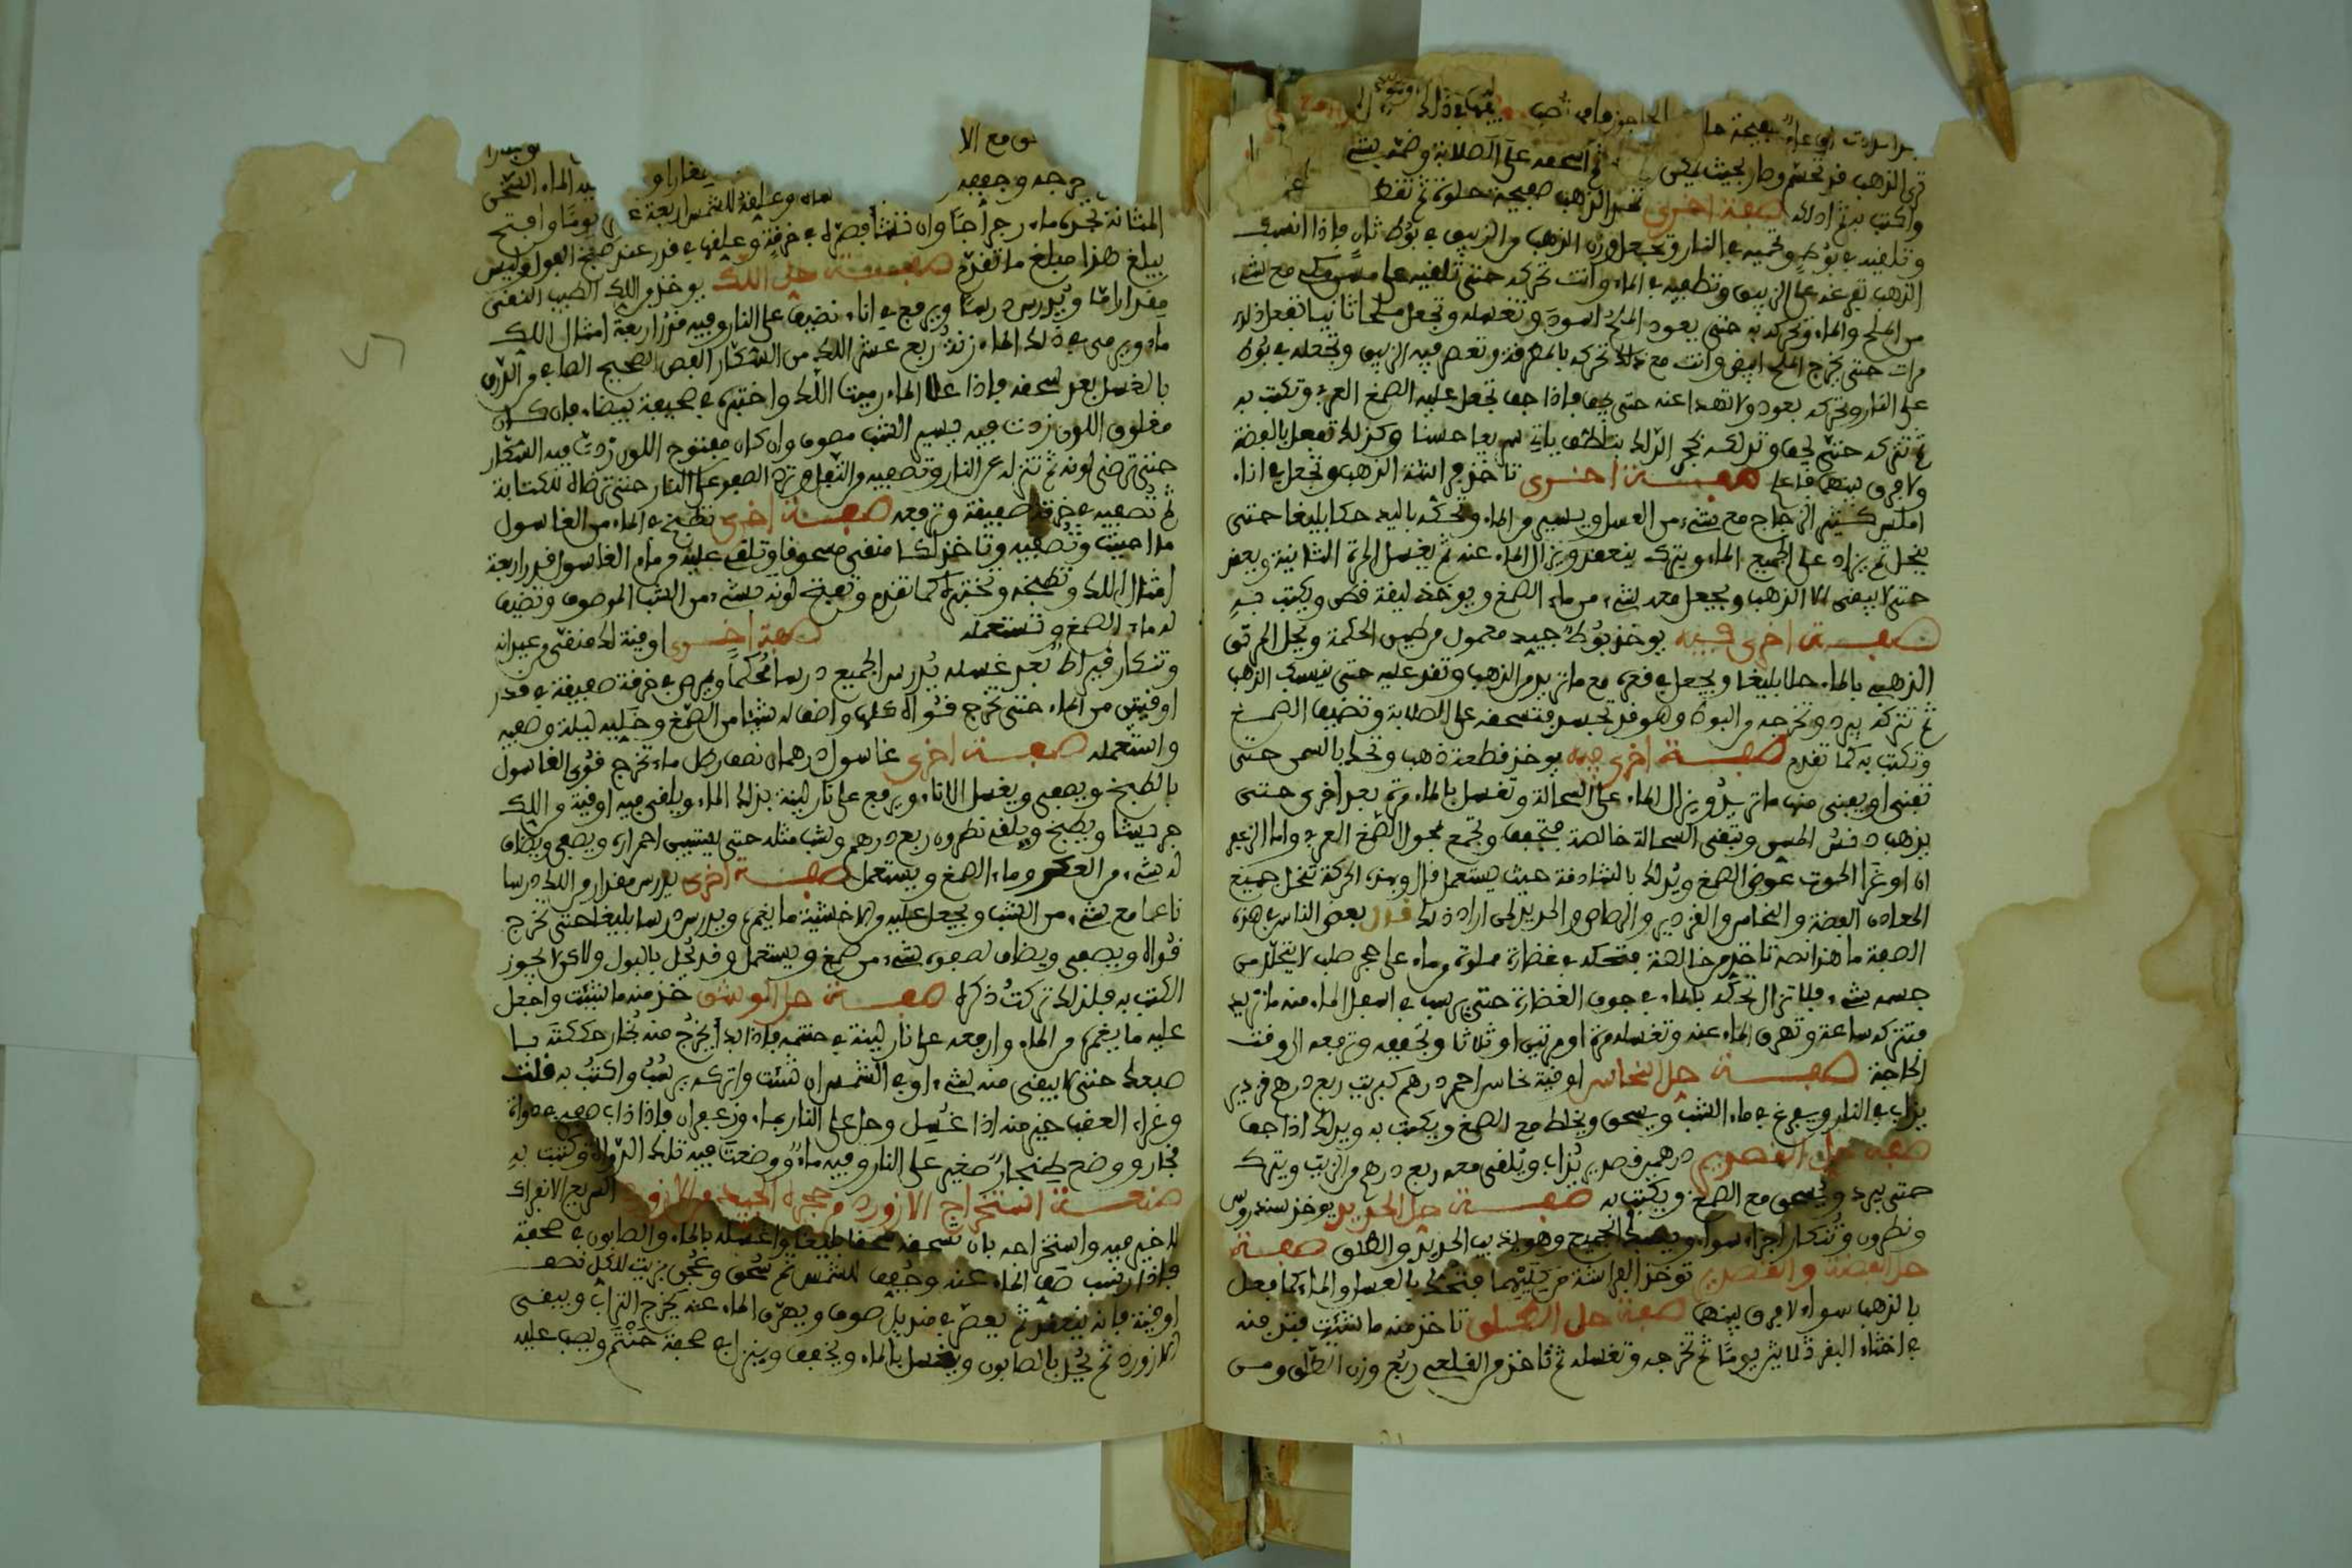 ترى الذهب قد تحشم وصار بحيث يمكن ثم اسحقه على الصلابة وضمه بشيء
واكتب به ثم ادلك صفة اخرى تتخذ الذهب صفيحة حلوة ثم تقطع
وتلقيه في بوط وتحميه في النار وتجعل وزن الذهب من الزيبق في بوط ثان فاذا انسبك
الذهب تفرغه على الزيبق وتطفيه في الماء وانت تحركه حتى تلقيه على مع شيء
من الملح والماء وتحركه به حتى يعود الملح اسود وتغسله وتجعل ملحا ثانيا تفعل ذلك
مرات حتى يخرج الملح ابيض وانت مع ذلك تحركه بالمغرفة وتعصر فيه الزيبق وتجعله في بوط
على النار وتحركه بعود ولا تهدا عنه حتى يجف فاذا جف تجعل عليه الصمغ العربي وتكتب به
ثم تتركه حتى يجف وتدلكه بحجر الدلك بتلطف ياتي بديعا حسنا وكذلك تفعل بالفضة
ولا فرق بينهما فاعلم صفة اخرى تاخذ من اشنة الذهب وتجعل في اناء
املس كثير الزجاج مع شيء من العسل ويسير من الماء وتحكه باليد حكا بليغا حتى
ينحل ثم يزاد على الجميع الماء ويترك ينعقد ويزال الماء عنه ثم يغسل المرة الثانية ويعقد
حتى لا يبقى الا الذهب ويجعل معه شيء من ماء الصمغ ويوخذ ليقة قطن ويكتب به
صفة اخرى فيه يوخذ بوط جيد معمول من طين الحكمة ويحل المرتق
الذهبي بالماء حلا بليغا ويجعل في قعره مع ما تريد من الذهب وتقد عليه حتى ينسبك الذهب
ثم تتركه يبرد وتخرجه من البوط وهو قد تجسد فتسحقه على الصلابة وتضيف الصمغ
وتكتب به كما تقدم صفة اخرى فيه يوخذ قطعة ذهب وتحك بالمسن حتى
تفنى او يفنى منها ما تريد ويزال الماء على السحالة وتغسل بالماء مرة بعد اخرى حتى
يذهب دنس المسن وتبقى السحالة خالصة فتجفف وتجمع بمحلول الصمغ العربي واما الزعفر
ان او غرا الحوت عوض الصمغ ويدلك بالشادنة حيث يستعمل قال وبهذه الحركة تنحل جميع
المعادن الفضة والنحاس والقزدير والرصاص والحديد لمن اراد ذلك قال بعض الناس في هذه
الصفة ما هذا نصه تاخذ من خالصة فتحكه في غضارة مملوة من ماء على حجر صلب لا يتحلل من
جسمه شيء فلا تزال تحكه بالماء في جوف الغضارة حتى يرسب في اسفل الماء منه ما تريد
فتتركه ساعة وتهرق الماء عنه وتغسله مرة او مرتين او ثلاثا وتجففه وترفعه الى وقت
الحاجة صفة حل النحاس اوقية نحاس احمر درهم كبريت ربع درهم قزدير
يذاب في النار ويفرغ في ماء الشب ويسحق ويخلط مع الصمغ ويكتب به ويدلك اذا جف
صفة حل القصدير درهم قصدير يذاب ويلقى معه ربع درهم من الزيبق ويترك
حتى يبرد ويسحق مع الصمغ ويكتب به صفة حل الحديد يوخذ سندروس
ونطرون وتنكار اجزاء سواء ويصير الجميع وهو يذيب الحديد والطلق صفة
حل الفضة والقصدير توخذ الفراشة من كليهما فتحك بالعسل والماء كما فعل
بالذهب سواء لا فرق بينهما صفة حل الطلق تاخذ منه ما شئت فتدفنه
في اخثاء البقر ثلاثين يوما ثم تخرجه وتغسله ثم تاخذ من القلعي ربع وزن الطلق ومن
يخرجه وجففه
المثانة تجرى ماء رجراجا وان شئت فصره في خرقة وعلقها في قدر عند طبخ الفول وليس
يبلغ هذا مبلغ ما تقدم صفة حل اللك يوخذ من اللك الطيب النقي
مقدارا ما ويدرس درسا ويرفع في اناء نضيف على النار وفيه قدر اربعة امثال اللك
ماء ويرمى في ذلك الماء زنة ربع عشر اللك من الشكار الفص الصحيح الصافي من الدرن
بالغسل بعد سحقه فاذا غلا الماء رميت اللك واختبره في صحيفة بيضاء فان كان
مغلوق اللون زدت فيه يسير الشب مصوف وان كان مفتوح اللون زدت فيه الشكار
حتى ترضى لونه ثم تنزله عن النار وتصفيه من الثفل وترد الصفو على النار حتى ترضاه للكتابة
ثم تصفيه في خرقة صفيقة وترفعه صفة اخرى تطبخ في الماء من الغاسول
ما احببت وتصفيه وتاخذ لكا منقى مسحوقا وتلقى عليه من ماء الغاسول قدر اربعة
امثال اللك وتطبخه وتختبره كما تقدم وتفتح لونه بشيء من الشب الموصوف وتضيف
له ماء الصمغ وتستعمله صفة اخرى اوقية لك منقى من عيدانه
وتنكار قيراط بعد غسله يدرس الجميع درسا محكما ويصر في خرقة صفيقة في قدر
اوقيتين من الماء حتى تخرج قواه كلها واضف له شيئا من الصمغ وخليه ليلة وصفيه
واستعمله صفة اخرى غاسول درهمان نصف رطل ماء تخرج قوى الغاسول
بالطبخ ويصفى ويغسل الاناء ويرفع على نار لينة بذلك الماء ويلقى فيه اوقية من اللك
جريشا ويطبخ ويلقى نطرون ربع درهم وشب مثله حتى يستبين احمراره ويصفى ويضاف
له شيء من العكر وماء الصمغ ويستعمل صفة اخرى يدرس مقدار من اللك درسا
ناعما مع شيء من الشب ويجعل عليه من الاخشية ما يغمره ويدرس درسا بليغا حتى تخرج
قواه ويصفى ويضاف لصفوه شيء من صمغ ويستعمل وقد يحل بالبول ولاكن لا يجوز
الكتب به فلذلك تركت ذكره صفة حل الوشق خذ منه ما شئت واجعل
عليه ما يغمره من الماء وارفعه على نار لينة في حنتمة فاذا بدا يخرج منه بخار حككته با
صبعك حتى لا يبقى منه شيء او في الشمس ان شئت واتركه يرسب واكتب به قلت
وغراء العقب خير منه اذا غسل وحل على النار بماء وزعفران فاذا ذاب صفيه في دواة
فخار ووضع طنجير صغير على النار وفيه ماء ووضعت فيه تلك الدواة وكتبت به
صنعة استخراج الازورد من حجره الجيد من الازورد السريع الانفراك
لا خير فيه واستخراجه بان تسحقه سحقا بليغا واغسله بالماء والصابون في صحفة
فاذا رسب صف الماء عنه وجفف للشمس ثم سحق وعجن بزيت لكل نصف
اوقية فانه ينعقد ثم يعصر في منديل صوف ويهرق الماء عنه يخرج التراب ويبقى
الازورد ثم يحل بالصابون ويغسل بالماء ويجفف وينزل في صحفة حنتم ويصب عليه